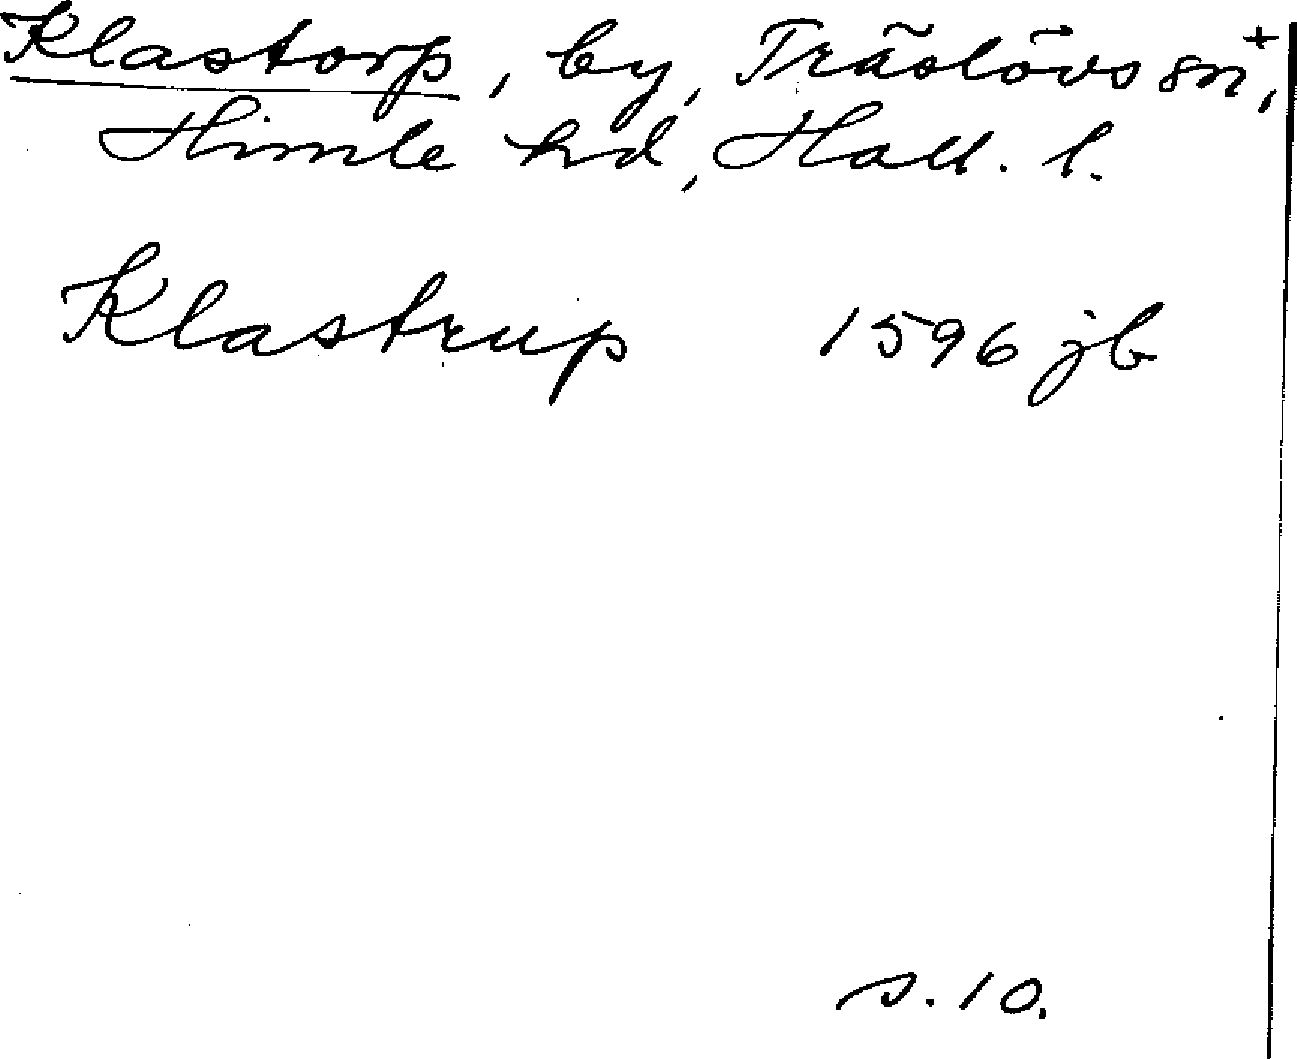 Klastorp, by, Träslövs sn+,
Himle hd, Hall. l.
Klastrup 1596 jb
s. 10.